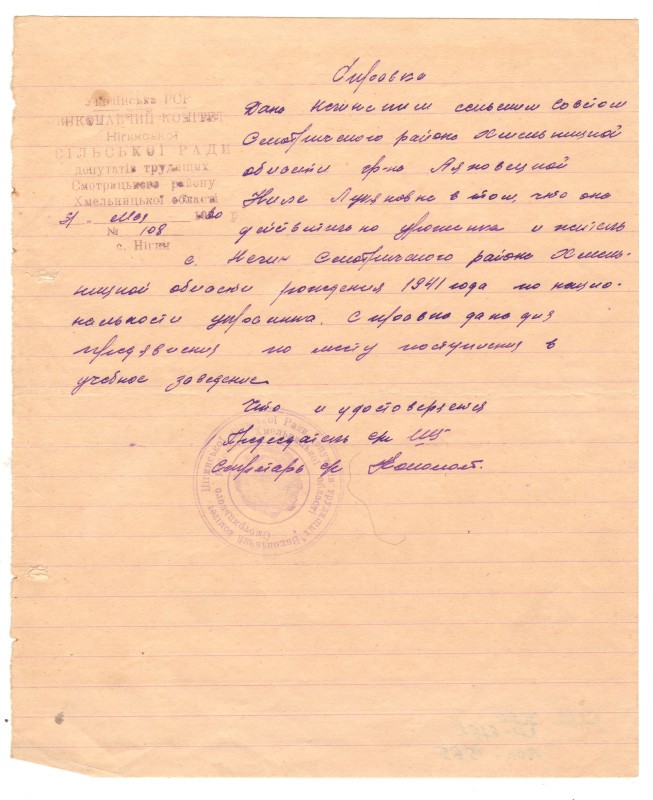 Справка
Українська РСР
ВИКОНАВЧИЙ КОМІТЕТ
Нігинської
СІЛЬСЬКОЇ РАДИ
депутатів трудящих
Смотрицького району
Хмельницької області
31 мая 1960 р
№ 108
с. Нігин
Дана Негинским сельским советом
Смотричского района Хмельницкой
области гр-ке
Нине Лукяновне в том, что она
действительно урошенка и житель
с. Негин Смотричского района Хмель-
ницкой области рождения 1941 года по нацио-
нальности украинка. Справка дана для
предявления по месту поступления в
учебное заведение
Что и удостоверяется
Председатель с/с
Секретарь с/с